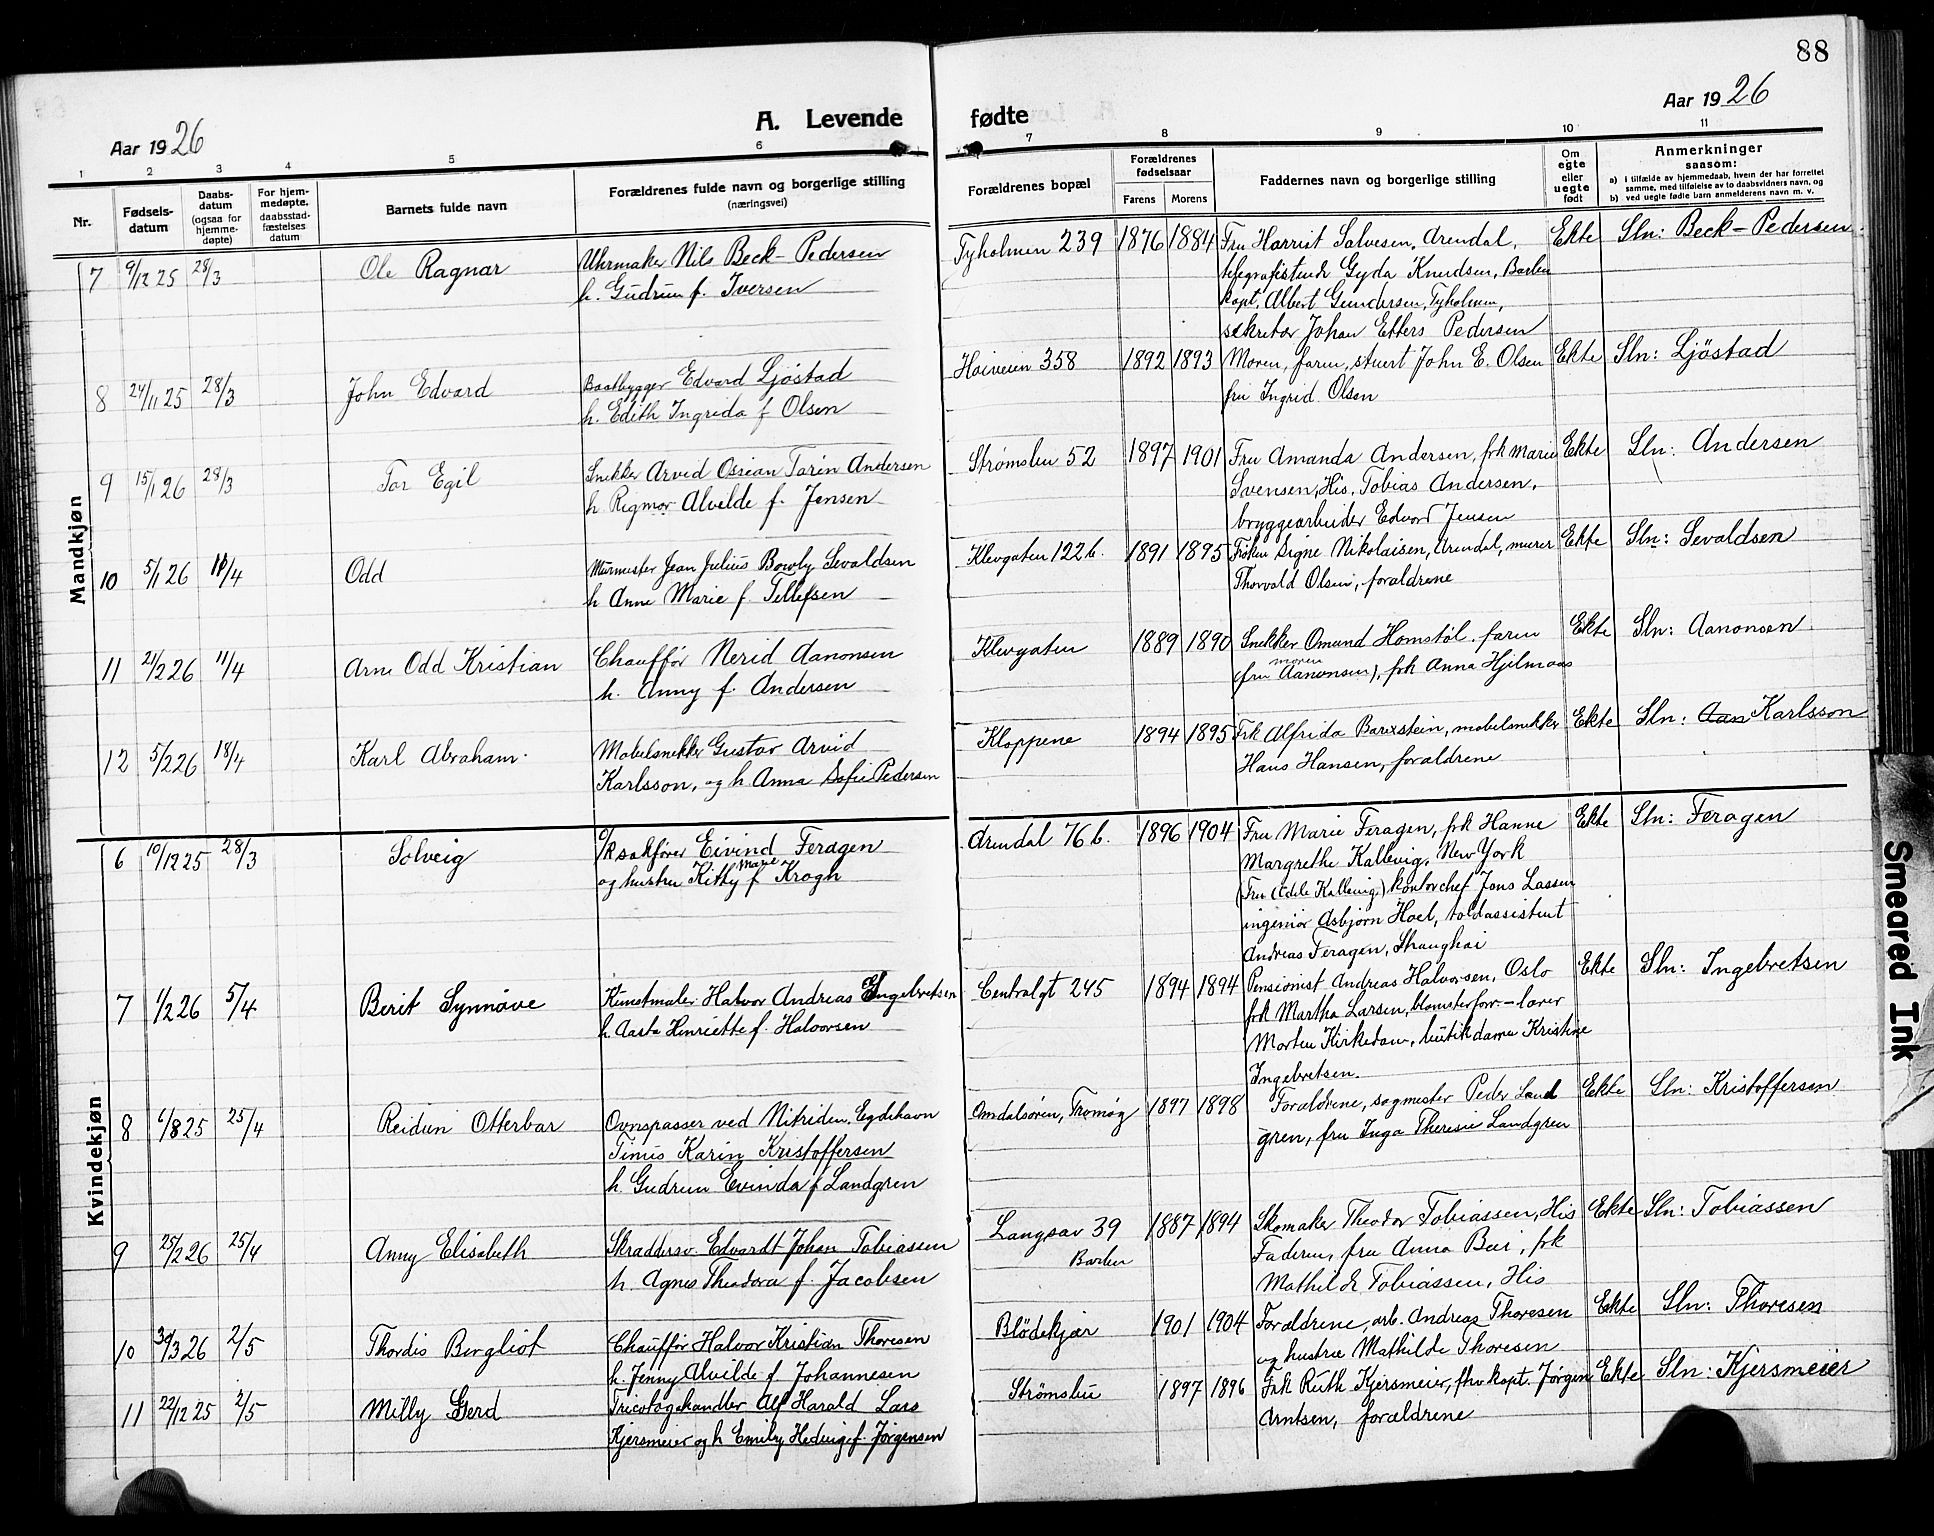 88
Aar 1926
A. Levende
fødte
Aar 1926
1 2 3 4 5 6
7 8 9 10 11
Nr.
Fødsels-
datum
Daabs-
datum
(ogsaa for
hjemme-
døpte)
For hjem-
medøpte,
daabsstad-
fæstelses
datum
Barnets fulde navn
Forældrenes fulde navn og borgerlige stilling
(næringsvei)
Forældrenes bopæl
Forældrenes
fødselsaar
Farens Morens
Faddernes navn og borgerlige stilling
Om
egte
eller
uegte
født
Anmerkninger
saasom:
a) i tilfælde av hjemmedaab, hvem der har forrettet
samme, med tilføielse av to daabsvidners navn, og
b) ved uegte fødte barn anmelderens navn m. v.
Mandkjøn
7 9/12 25 28/3 Ole Ragnar
Uhrmaker Nils Beck-Pedersen
h. Gudrun f. Iversen
Tyholmen 239 1876 1884
Fru Harriet Salvesen, Arendal,
telegrafistinde Gyda Knudsen, Barbu
kapt, Albert Gundersen, Tyholmen,
sekretær Johan Etters Pedersen
Ekte Sln: Beck-Pedersen
8 24/11 25 28/3 John Edvard
Baatbygger Edvard Ljöstad
h. Edith Ingrida f Olsen
Höiveien 358 1892 1893
Moren, faren, stuert John E. Olsen
fru Ingrid Olsen
Ekte Sln: Ljöstad
9 15/1 26 28/3 Tor Egil
Snekker Arvid Ossian Tarin Andersen
h. Rigmor Alvelde f. Jensen
Strømsbu 52 1897 1901
Fru Amanda Andersen, frk Marie
Svensen, His, Tobias Andersen,
bryggearbeider Edvard Jensen
Ekte Sln: Andersen
10 5/1 26 11/4 Odd
Murmester Jean Julius Bowly Sevaldsen
h Anne Marie f. Tellefsen
Klevgaten 122b. 1891 1895
Frøken Signe Nikolaisen, Arendal, murer
Thorvald Olsen, foraldrene
Ekte Sln: Sevaldsen
11 21/2 26 11/4 Arne Odd Kristian
Chauffør Nerid Aanonsen
h. Anny f. Andersen
Klevgaten 1889 1890
Snekker Omund Homstøl. faren
moren
(fru Aanonsen), frk Anna Hjilmaas
Ekte Sln: Aanonsen
12 5/2 26 18/4 Karl Abraham.
Møbelsnekker Gustav Arvid
Karlsson, og h Anna Sofie Pedersen
Kloppene 1894 1895
Frk Alfrida Barexstein, møbelsnekker
Hans Hansen, foraldrene
Ekte Sln: Aan Karlsson
Kvindekjøn
6 10/12 25 28/3 Solveig
O/Rsakfører Eivind Feragen
Marie
og hustru Kitty f Krogh
Arendal 76 b. 1896 1904
Fru Marie Feragen, frk Hanne
Margrethe Kallevig, New York
(Fru (Edele Kallevig) kontorchef Jons Lassen
ingeniør Asbjørn Hoel, toldassistent
Andreas Feragen, Shanghai
Ekte Sln: Feragen
7 1/2 26 5/4 Berit Synnöve
Kunstmaler Halvor Andreas Ingebretsen
h. Aasta Henriette f. Halvorsen
Centralgt 245 1894 1894
Pensionist Andreas Halvorsen, Oslo
frk Martha Larsen, blomsterforr-lærer
Morten Kirkedam, butikdame Kristine
Ingebretsen.
Ekte Sln: Ingebretsen
8 6/8 25 25/4 Reidun Otterbar
Ovnspasser ved Nitriden, Eydehavn
Timis Karin Kristoffersen
h. Gudrun Evinda f Landgren
Omdalsøren, Tromøy 1897 1898
Foraldrene, sagmester Peder Land
gren, fru Inga Theresie Landgren
Ekte Sln: Kristoffersen
9 25/2 26 25/4 Anny Elisabeth
Skraddersv. Edvardt Johan Tobiassen
h. Agnes Theodora f. Jacobsen
Langsæv 39
Barbu
1887 1894
Skomaker Theodor Tobiassen, His
Faderen, fru Anna Bui, frk
Mathilde Tobiassen, His
Ekte Sln: Tobiassen
10 30/3 26 2/5 Thordis Bergliot
Chauffør Halvor Kristian Thoresen
h. Jenny Alvilde f Johannesen
Blödekjær 1901 1904
Foraldrene, arb. Andreas Thoresen
og hustru Mathilde Thoresen
Ekte Sln: Thoresen
11 22/12 25 2/5 Milly Gerd
Tricotagehandler Alf Harald Lars
Kjersmeier og h Emily Hedvig f. Jørgensen
Strømsbu 1897 1896
Frk Ruth Kjersmeier, fhv kapt. Jørgen
Arntsen, foraldrene
Ekte Sln: Kjersmeier
Smeared Ink